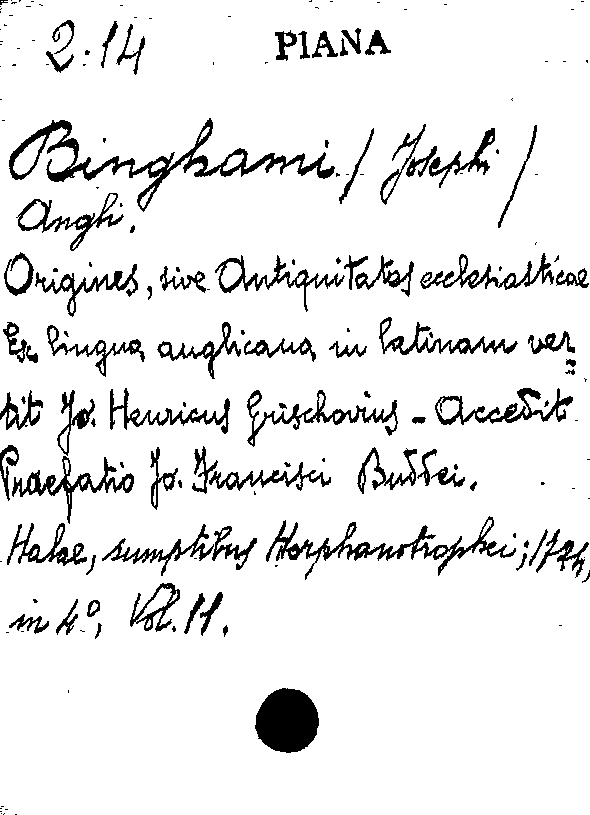 2.14 PIANA
Binghami / Josephi /
Angli.
Origines, sive Antiquitates ecclesiasticae
Ex lingua anglicana in latinam ver=
tit Jo. Henricus Grischovius - Accedit
Praefatio Jo. Francisci Buddei.
Halae, sumptibus Horphanotrophei; 1724,
in 4º, Vol. 11.